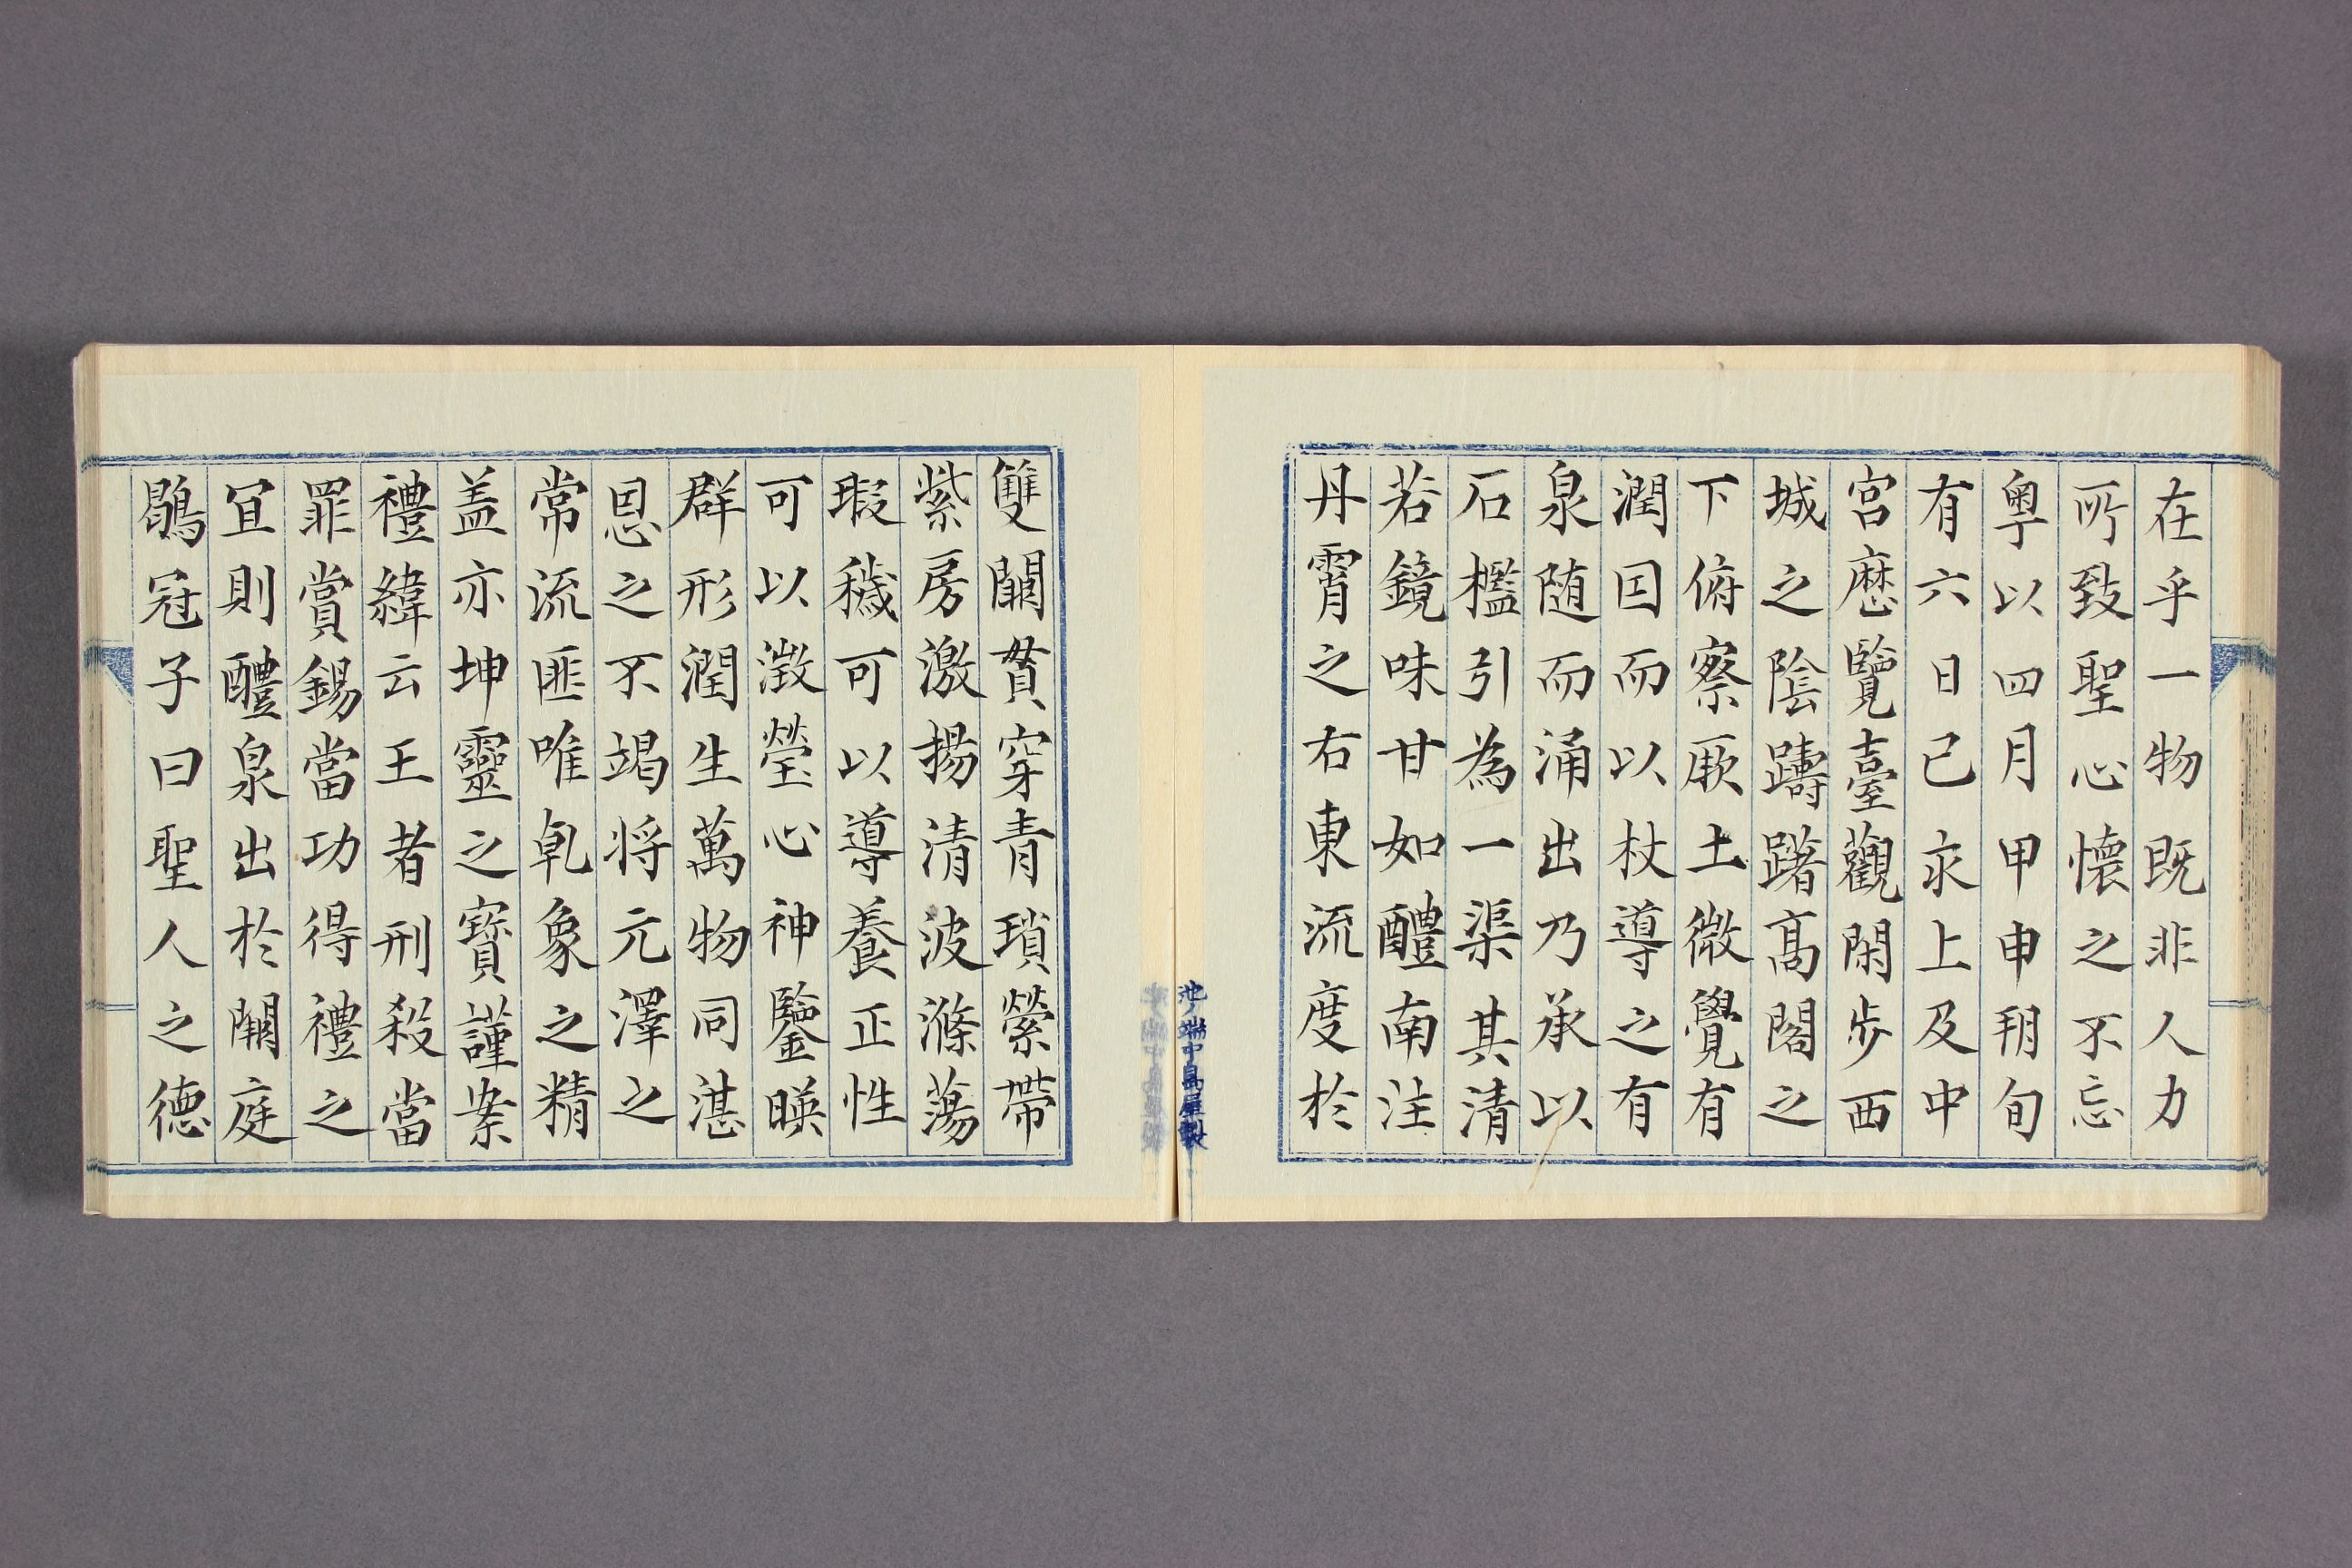 在乎一物既非人力
所致聖心懐之不忘
粤以四月甲申朔旬
有六日己亥上及中
宮歴覽臺觀閑歩西
城之陰躊躇髙閣之
下俯察厥土微覺有
潤因而以杖導之有
泉随而涌出乃承以
石檻引為一渠其清
若鏡味甘如醴南注
丹霄之右東流度於
雙闕貫穿青瑣縈帶
紫房激揚清波滌蕩
瑕穢可以導養正性
可以澂瑩心神鑒暎
群形潤生萬物同湛
恩之不竭将元澤之
常流匪唯乹象之精
盖亦坤靈之寳謹案
禮緯云王者刑殺當
罪賞錫當功得禮之
宜則醴泉出於闕庭
鶡冠子曰聖人之德
池ノ端中島屋製